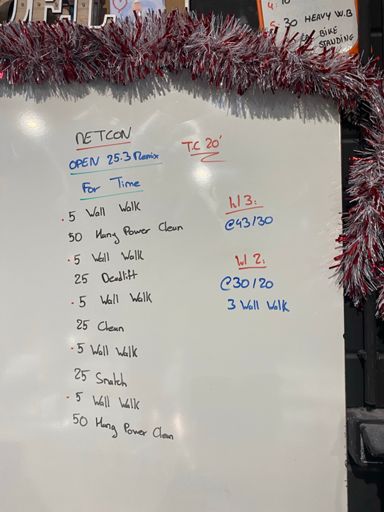 4: 10
5. 30 HEAVY W.B
BIKE
STANDING
METCON
T.C 20'
OPEN 25.3 Remix
For Time
. 5 Wall Walk
50 Hang Power Clean
. 5 Wall Walk
25 Deadlift
. 5 Wall Walk
25 Clean
. 5 Wall Walk
25 Snatch
. 5 Wall Walk
50 Hang Power Clean
W3:
@43/30
W2:
@30/20
3 Wall Walk